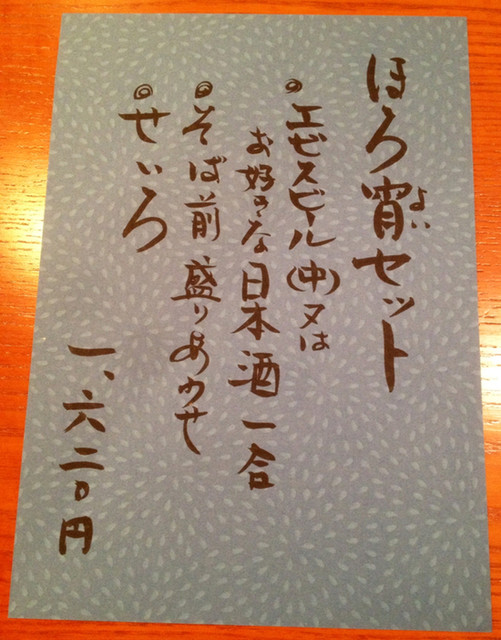 ほろ宵セット
よい
◎エビスビール(中)又は
お好きな日本酒一合
◎そば前盛りあわせ
◎せいろ
一、六二〇円